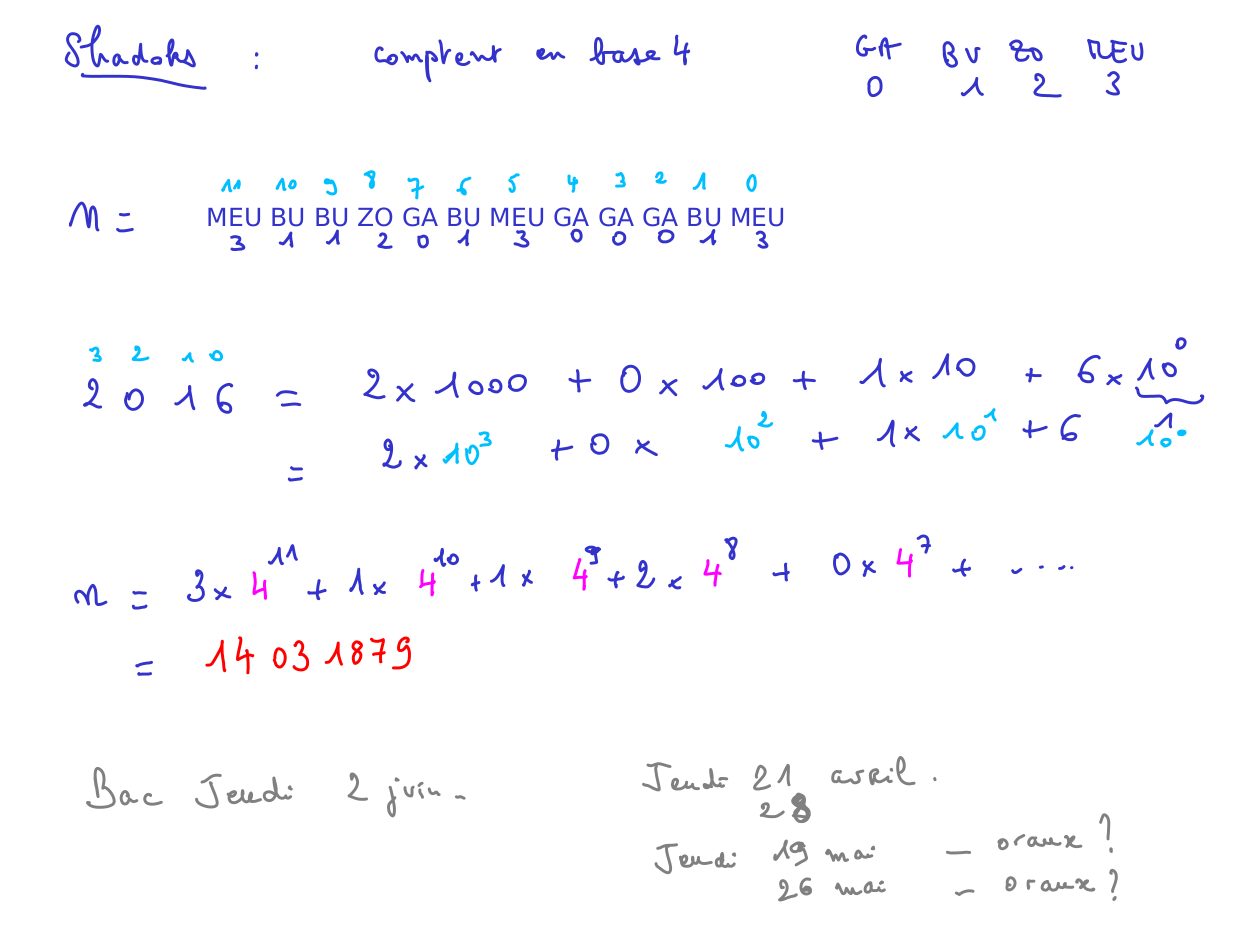 Shadoks : comptent en base 4 GA BU ZO MEU
0 1 2 3
11 10 9 8 7 6 5 4 3 2 1 0
n = MEU BU BU ZO GA BU MEU GA GA GA BU MEU
3 1 1 2 0 1 3 0 0 0 1 3
3 2 1 0
2 0 1 6 = 2 × 1000 + 0 × 100 + 1 × 10 + 6 × 10⁰
1
= 2 × 10³ + 0 × 10² + 1 × 10¹ + 6 10⁰
n = 3 × 4¹¹ + 1 × 4¹⁰ + 1 × 4⁹ + 2 × 4⁸ + 0 × 4⁷ + ....
= 14 03 1879
Bac Jeudi 2 juin -
Jeudi 21 avril .
28
Jeudi 19 mai - oraux ?
26 mai - oraux ?